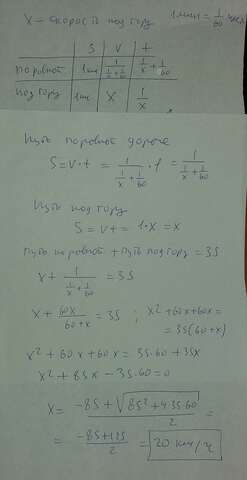 x – скорость под гору 1 мин = 1/60 часа
S v t
по ровной 1 км 1/(1/x + 1/60) 1/x + 1/60
под гору 1 км x 1/x
Путь по ровной дороге
S = v · t = 1/(1/x + 1/60) · 1 = 1/(1/x + 1/60)
Путь под гору
S = vt = 1 · x = x
путь по ровной + путь под гору = 35
x + 1/(1/x + 1/60) = 35
x + 60x/(60+x) = 35 ; x² + 60x + 60x =
= 35(60+x)
x² + 60x + 60x = 35·60 + 35x
x² + 85x – 35·60 = 0
x = (–85 + √(85² + 4·35·60))/2 =
= (–85+125)/2 = 20 км/ч